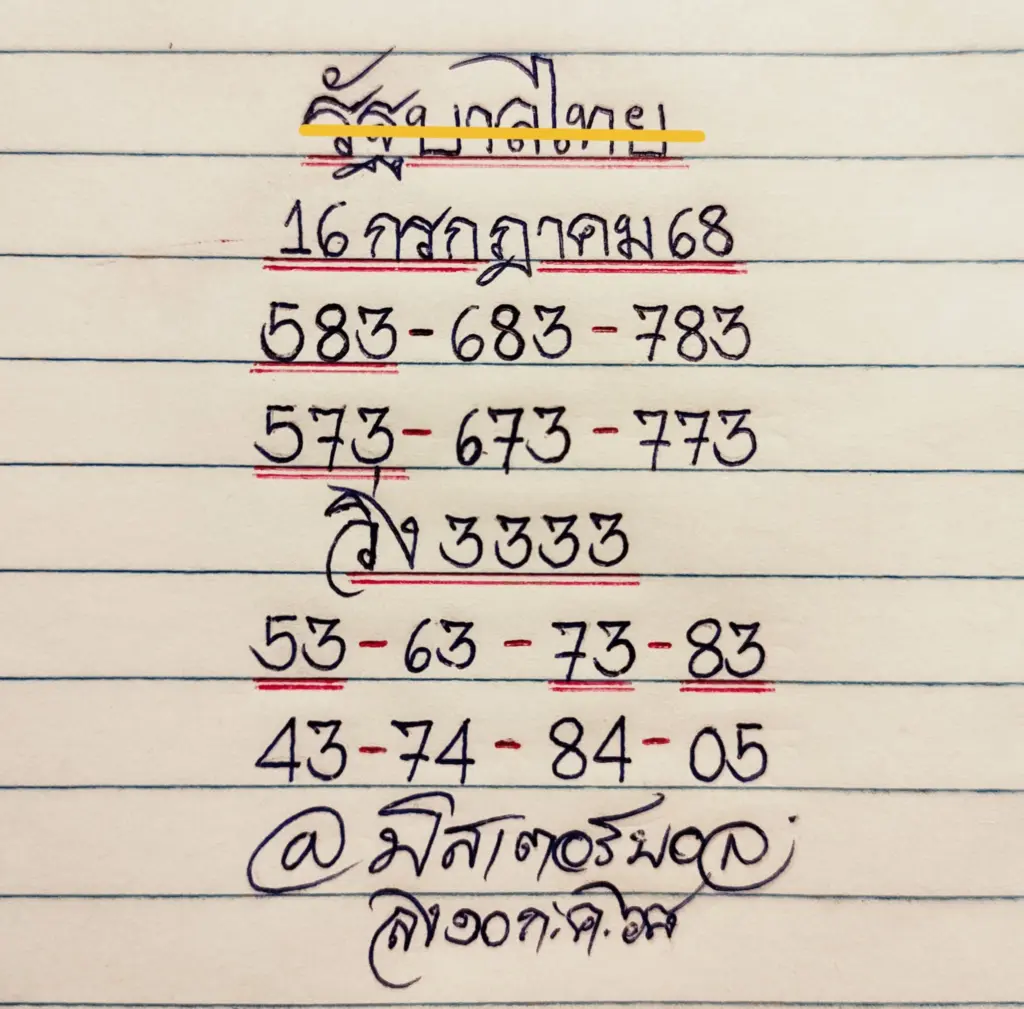 รัฐบาลไทย
16 กรกฎาคม 68
583 - 683 - 783
573 - 673 - 773
วิ่ง 3333
53 - 63 - 73 - 83
43 - 74 - 84 - 05
@มิสเตอร์บอล
ลง๑๐ก.ค.๖๘